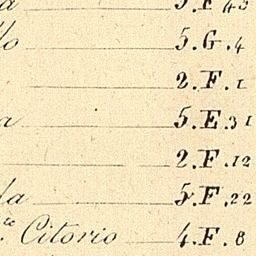 5.F 43
lo 5.G.4
2.F.1
a 5.E.31
2.F.12
la 5.F.22
Citorio 4.F.8